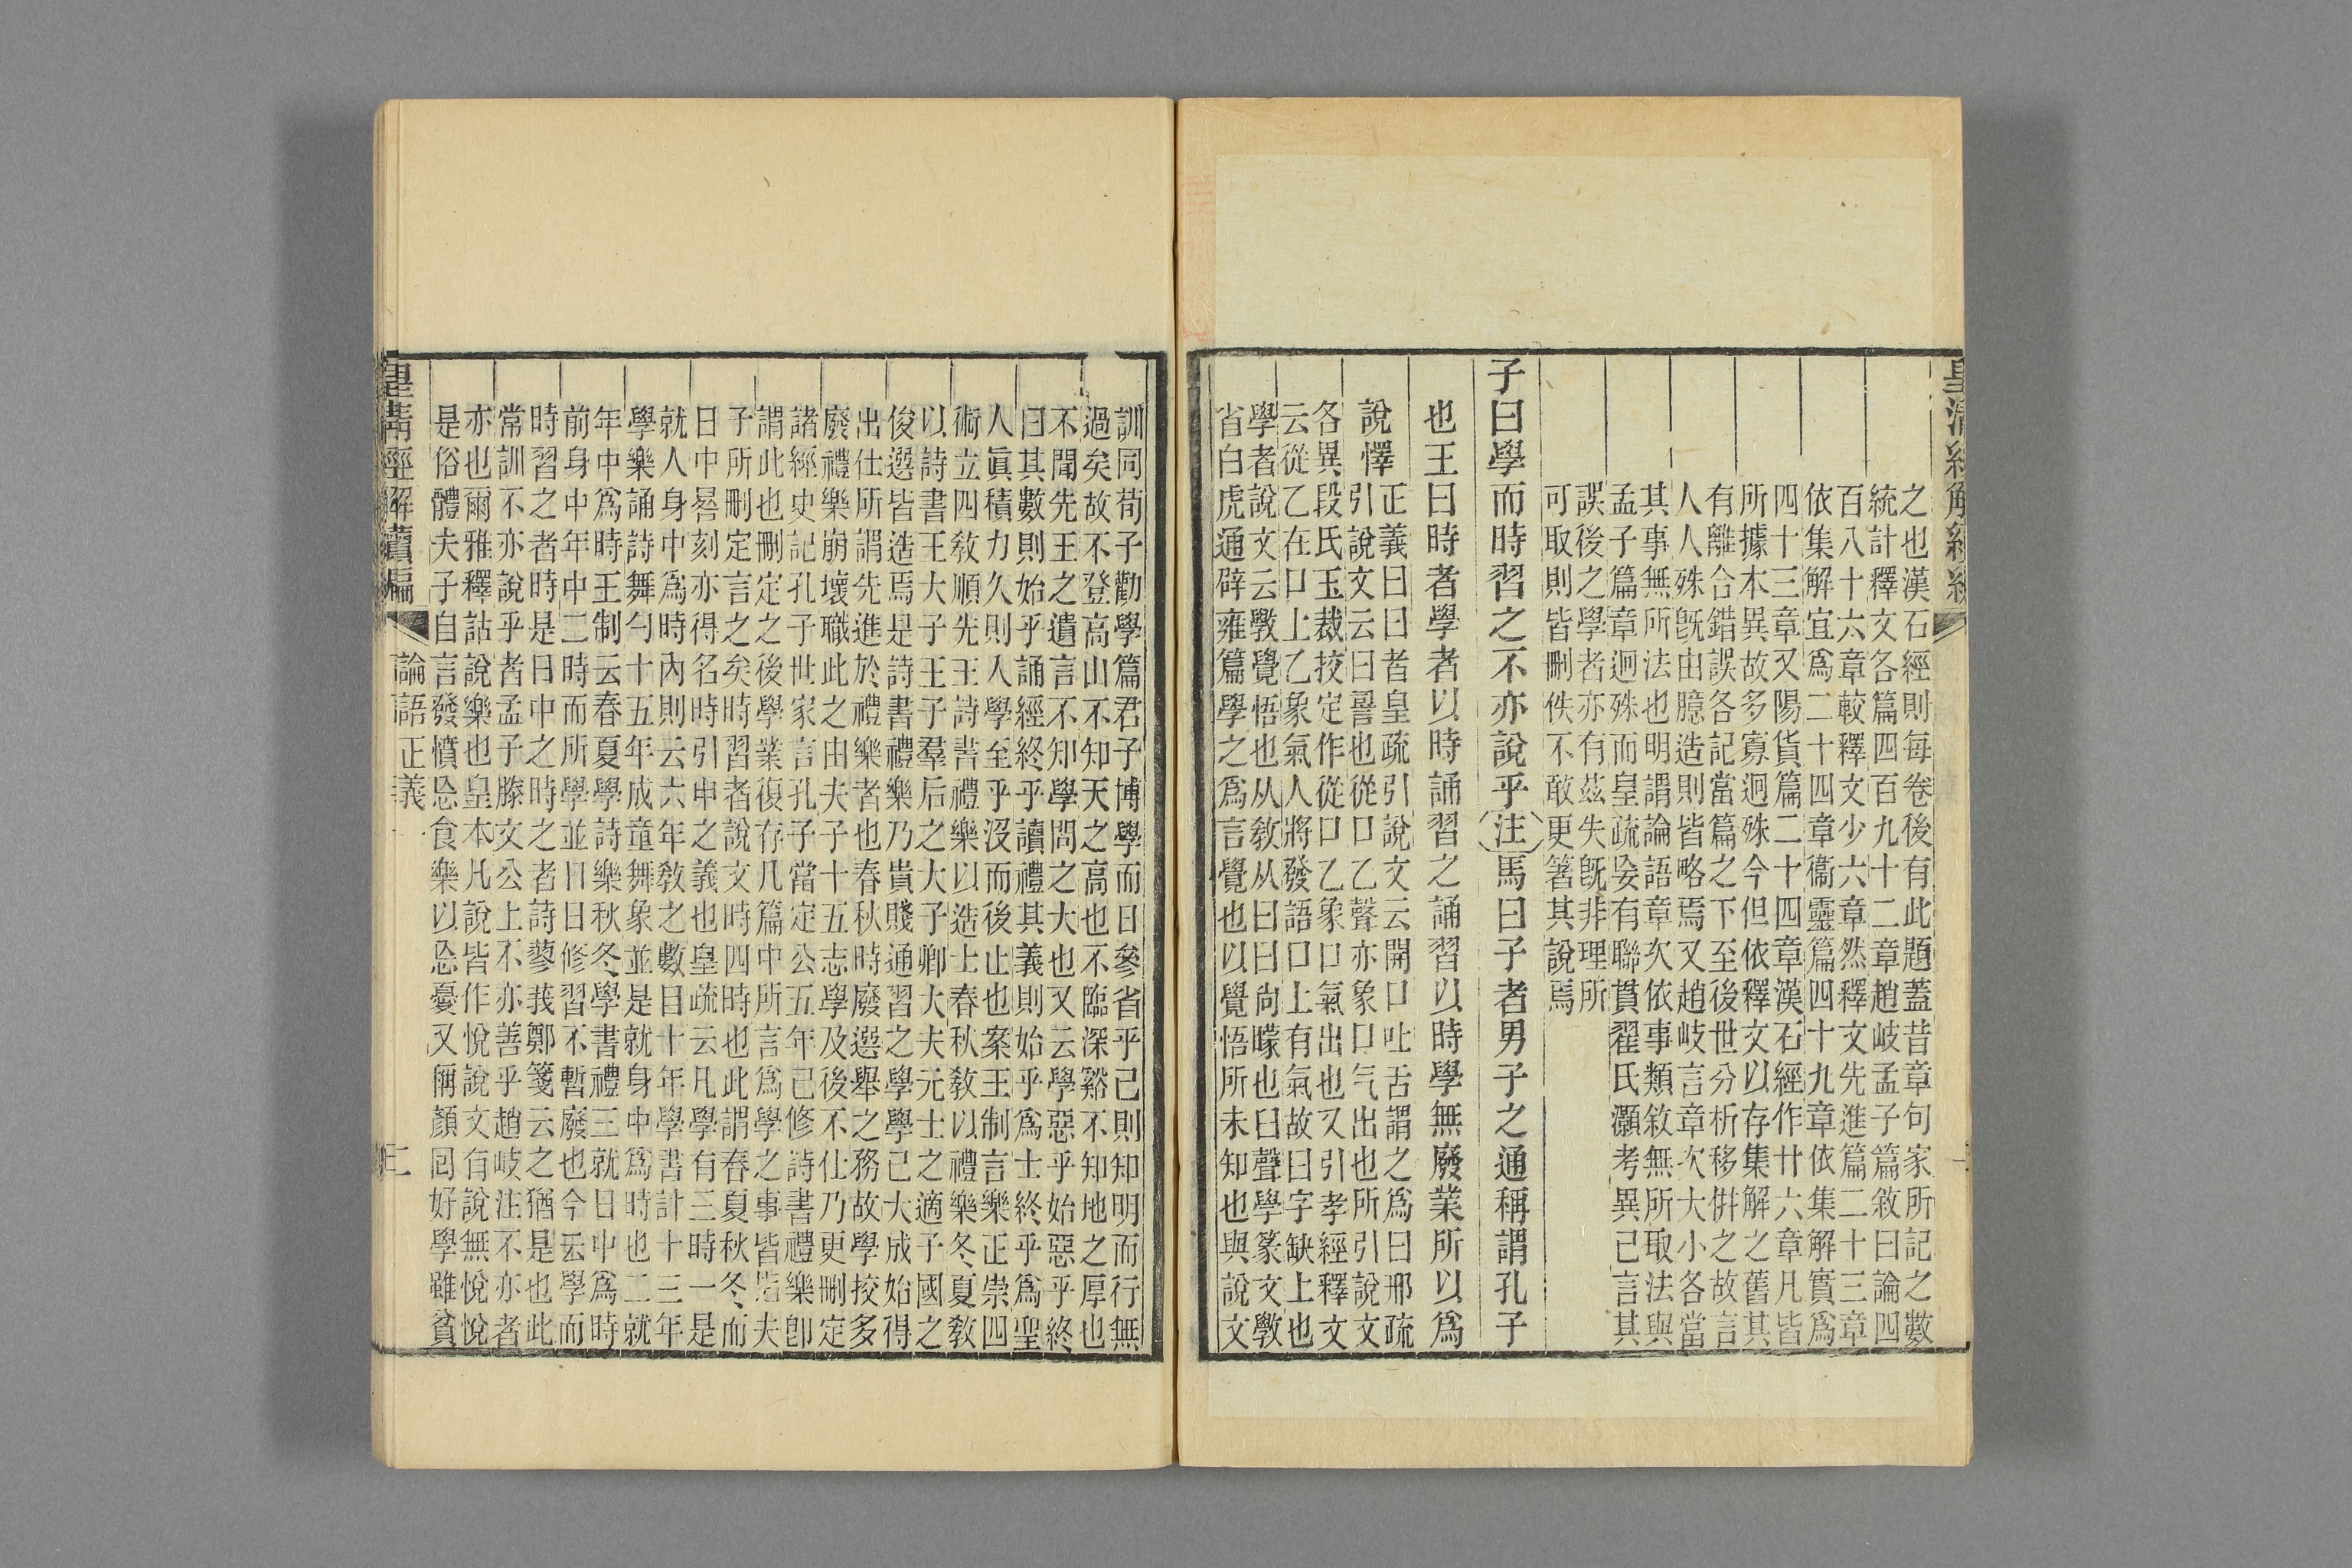 皇清經解續
之也漢石經則每卷後有此題蓋昔章句家所記之數
統計釋文各篇四百九十二章趙岐孟子篇敘曰論四
百八十六章較釋文少六章然釋文先進篇二十三章
依集解宜爲二十四章衞靈篇四十九章依集解實爲
四十三章又陽貨篇二十四章漢石經作廿六章凡皆
所據本異故多寡迥殊今但依釋文以存集解之舊其
有離合錯誤各記當篇之下至後世分析移倂之故言
人人殊旣由臆造則皆略焉又趙岐言章次大小各當
其事無所法也明謂論語章次依事類敘無所取法與
孟子篇章迥殊而皇疏妄有聯貫翟氏灝考異己言其
誤後之學者亦有茲失旣非理所
可取則皆刪佚不敢更箸其說焉
子曰學而時習之不亦說乎注馬曰子者男子之通稱謂孔子
也王曰時者學者以時誦習之誦習以時學無廢業所以爲
說懌
正義曰曰者皇疏引說文云開口吐舌謂之爲曰邢疏
引說文云曰䛐也從口乙聲亦象口气出也所引說文
各異段氏玉裁挍定作從口乙象口氣出也又引孝經釋文
云從乙在口上乙象氣人將發語口上有氣故曰字缺上也
學者說文云斆覺悟也从敎从冂冂尙矇也臼聲學篆文斆
省白虎通辟雍篇學之爲言覺也以覺悟所未知也與說文
訓同荀子勸學篇君子博學而日參省乎己則知明而行無
過矣故不登高山不知天之高也不臨深谿不知地之厚也
不聞先王之遺言不知學問之大也又云學惡乎始惡乎終
曰其數則始乎誦經終乎讀禮其義則始乎爲士終乎爲聖
人眞積力久則人學至乎沒而後止也案王制言樂正崇四
術立四敎順先王詩書禮樂以造士春秋敎以禮樂冬夏敎
以詩書王大子王子羣后之大子卿大夫元士之適子國之
俊選皆造焉是詩書禮樂乃貴賤通習之學學已大成始得
出仕所謂先進於禮樂者也春秋時廢選舉之務故學挍多
廢禮樂崩壞職此之由夫子十五志學及後不仕乃更刪定
諸經史記孔子世家言孔子當定公五年已修詩書禮樂卽
謂此也刪定之後學業復存凡篇中所言爲學之事皆指夫
子所刪定言之矣時習者說文時四時也此謂春夏秋冬而
日中晷刻亦得名時引申之義也皇疏云凡學有三時一是
就人身中爲時內則云六年敎之數目十年學書計十三年
學樂誦詩舞勺十五年成童舞象並是就身中爲時也二就
年中爲時王制云春夏學詩樂秋冬學書禮三就日中爲時
前身中年中二時而所學並日日修習不暫廢也今云學而
時習之者時是日中之時之者詩蓼莪鄭箋云之猶是也此
常訓不亦說乎者孟子滕文公上不亦善乎趙岐注不亦者
亦也爾雅釋詁說樂也皇本凡說皆作悅說文有說無悅悅
是俗體夫子自言發憤忘食樂以忘憂又稱顏回好學雖貧
皇淸經解續編 論語正義一 二